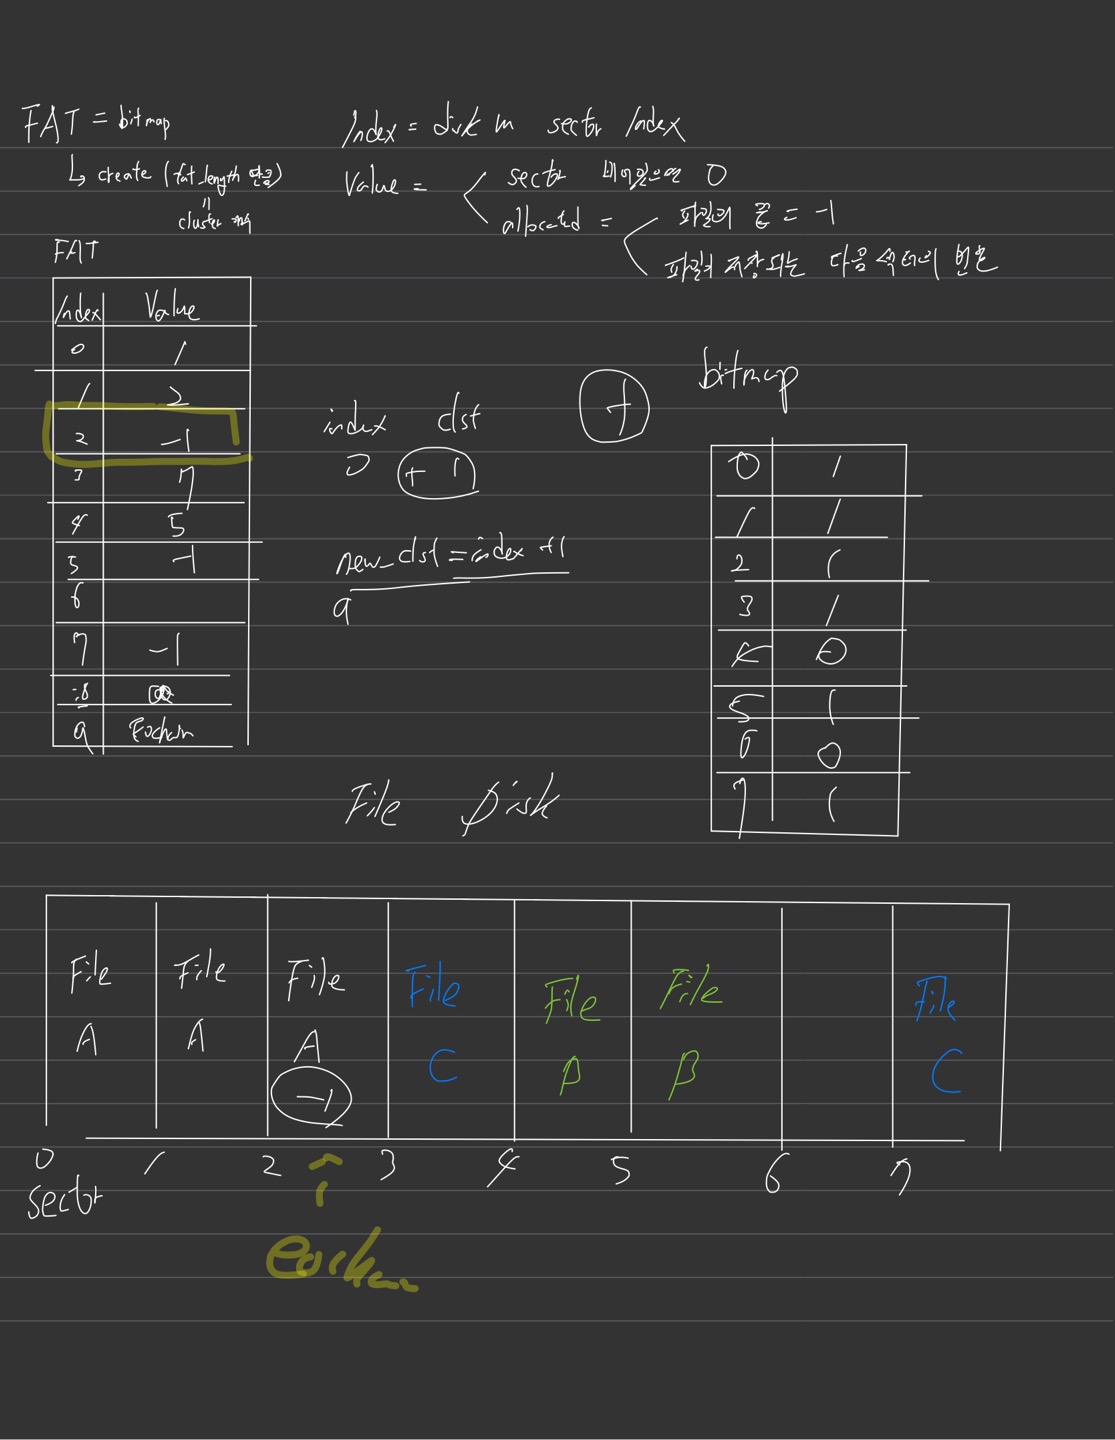 FAT = bitmap
↳ create (fat_length 만큼)
=
cluster 개수
Index = disk 내 sector Index
Value = sector 비어있으면 0
allocated = 파일의 끝 = -1
파일이 저장되는 다음 섹터의 번호
FAT
Index Value
0 1
1 2
2 -1
3 7
4 5
5 -1
6
7 -1
8
9 Eochain
index clst
0 + 1
new_clst = index +1
9
+
bitmap
0 1
1 1
2 1
3 1
4 0
5 1
6 0
7 1
File Disk
File A
File A
File A -1
File C
File B
File B
File C
0 1 2 3 4 5 6 7
sector
eochain